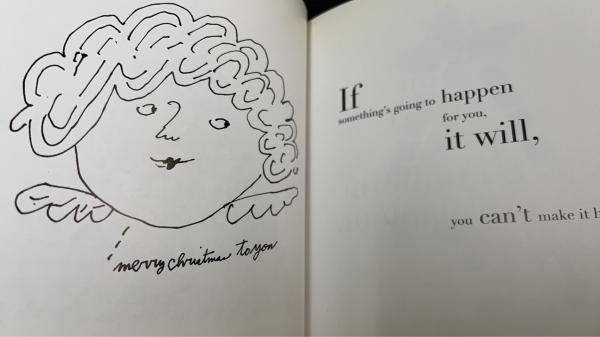 merry christmas to you
If
something's going to happen
for you,
it will,
you can't make it